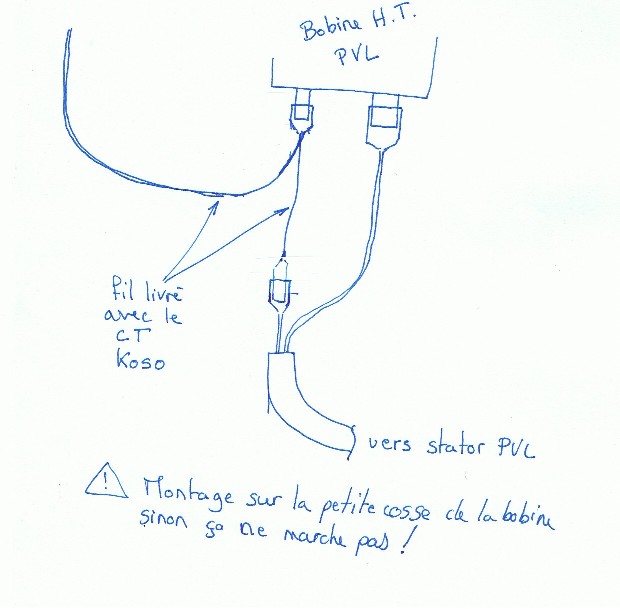 Bobine H.T.
PVL
fil livré
avec le
CT
Koso
vers stator PVL
! Montage sur la petite cosse de la bobine
sinon ça ne marche pas !